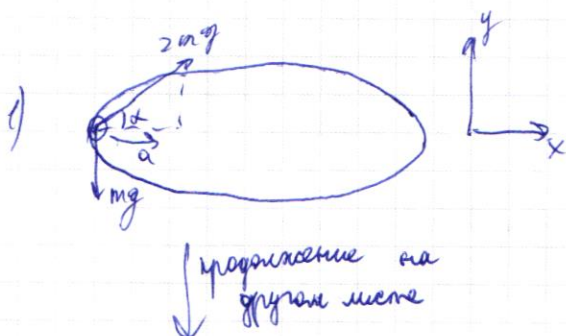 1)
2mg
α
a
mg
y
x
продолжение на
другом листе